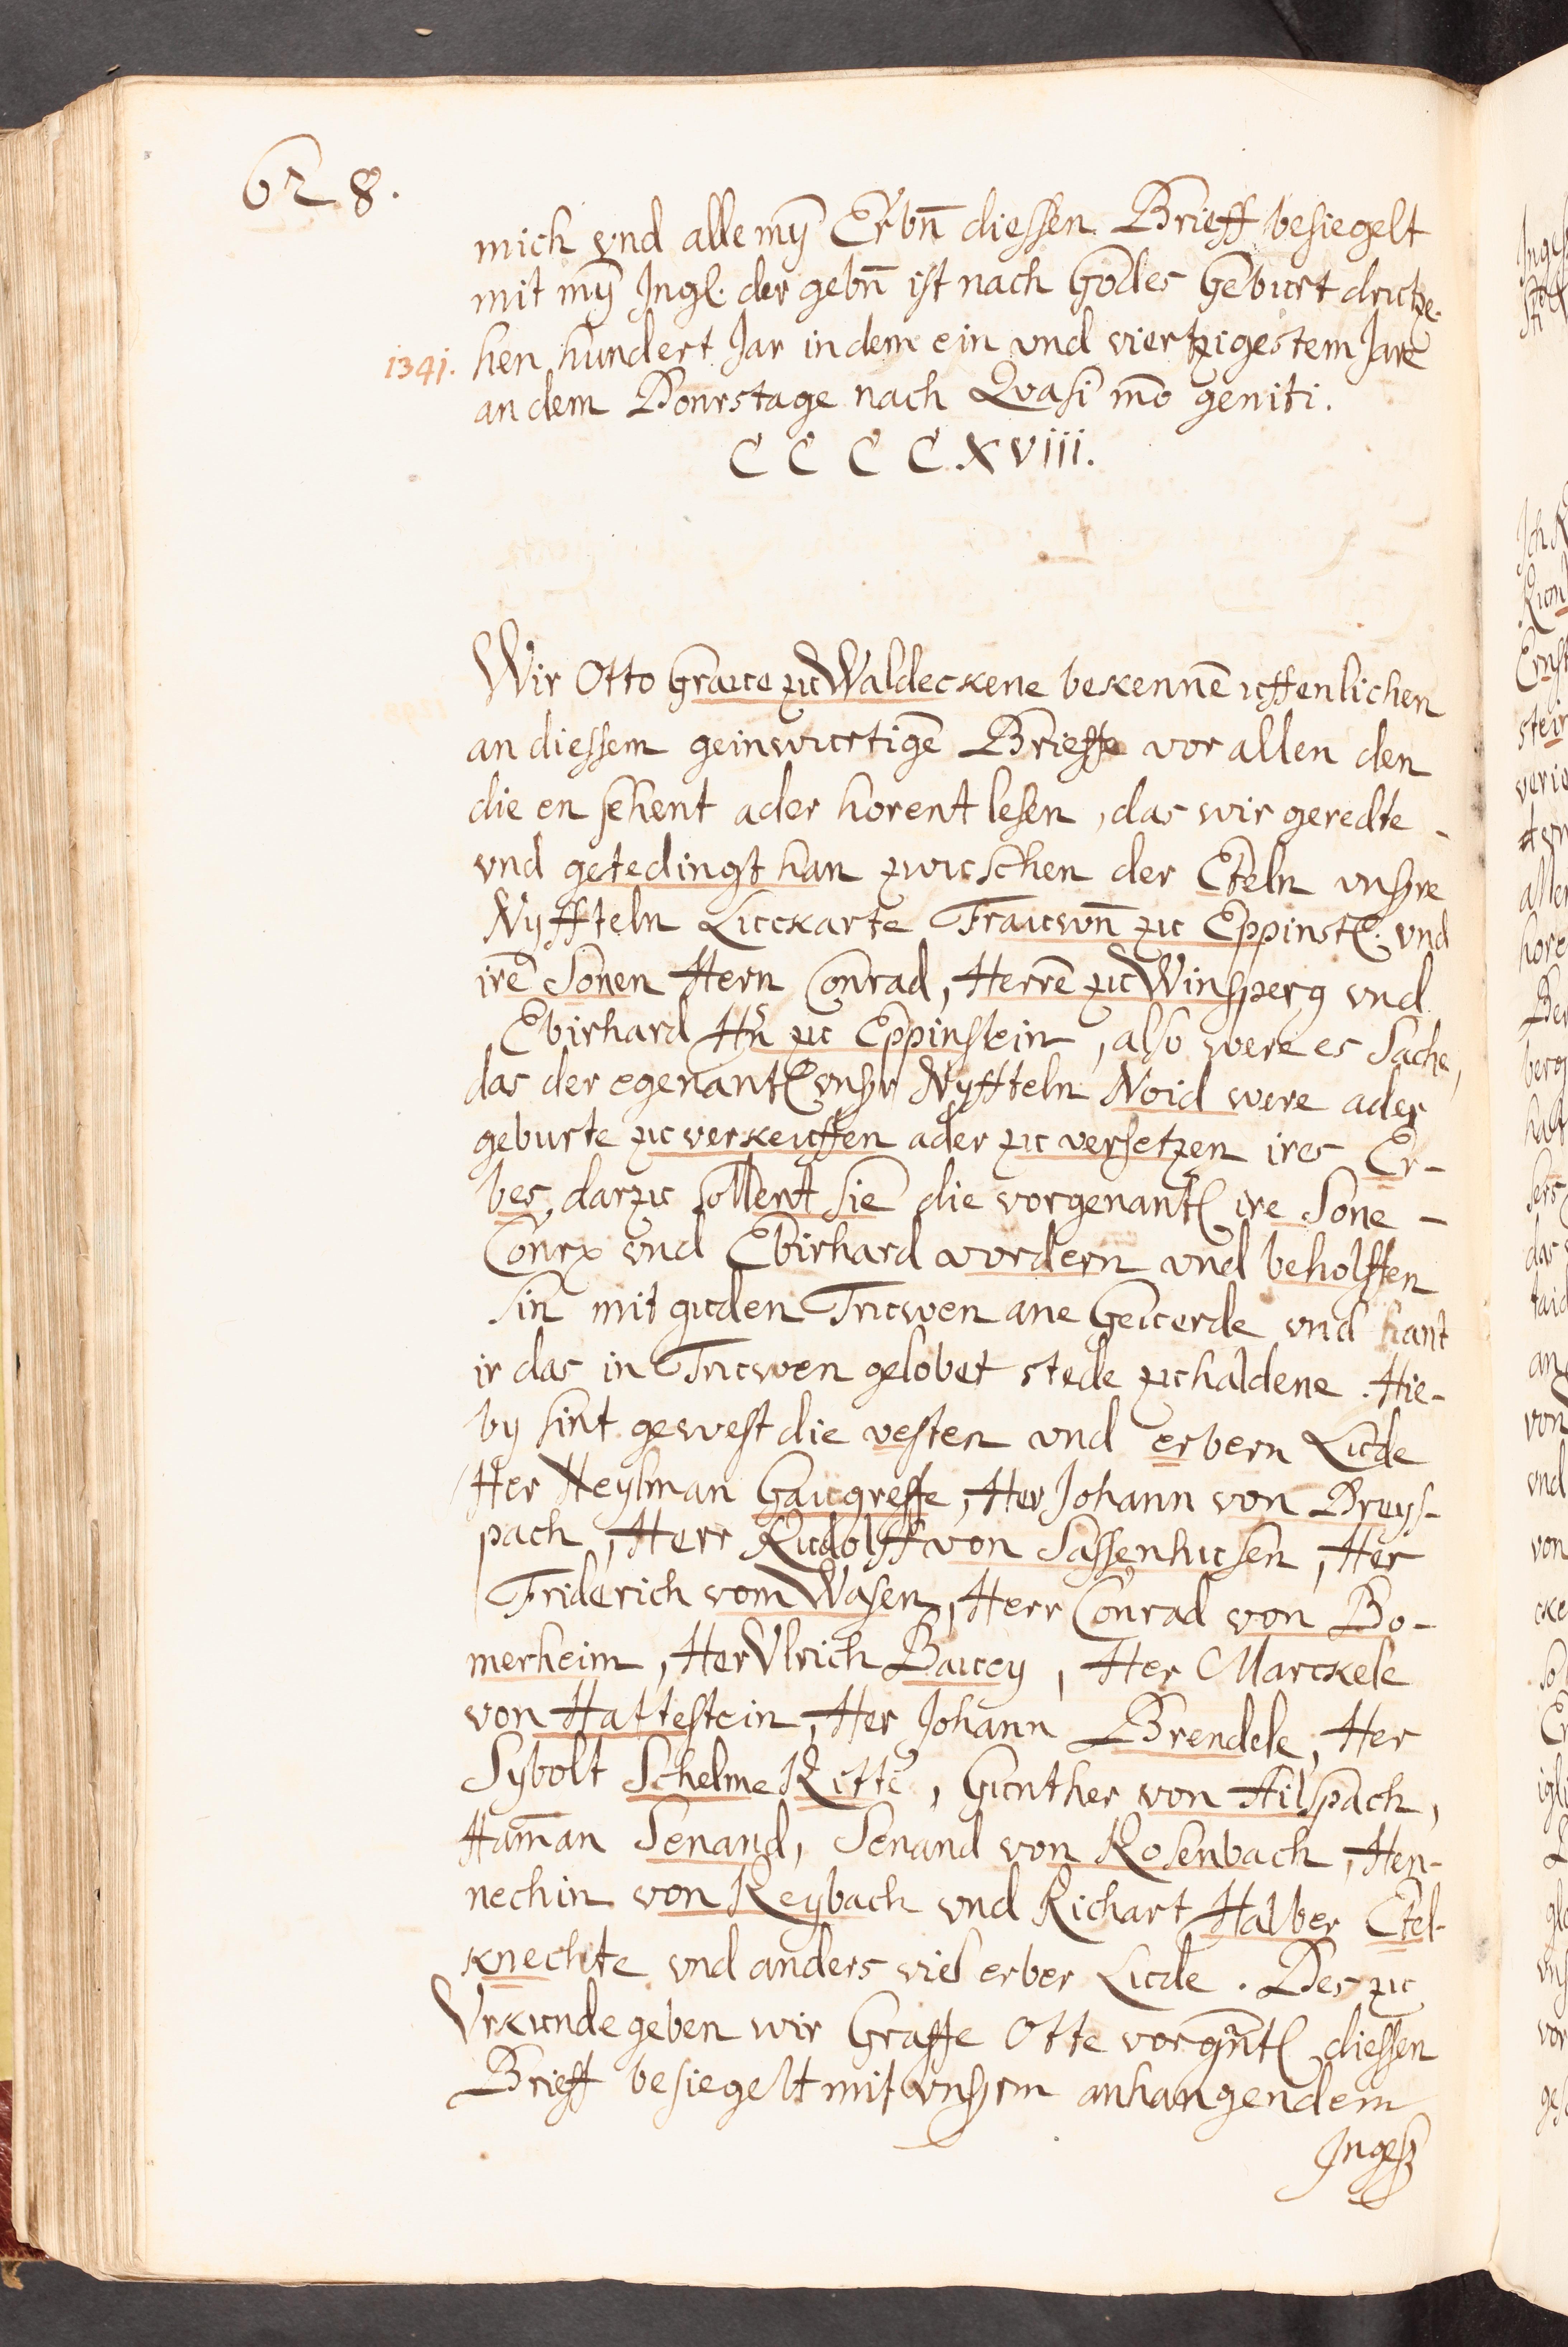 628.
mich vnd alle mȳ Erbn̄ diessen Brieff besiegelt
mit mȳ Ingl. der gebn̄ ist nach Godes Geburt drutze-
1341. hen hundert Jar in dem ein vnd viertzigestem Jare
an dem Donrstage nach Qvasi mo geniti.
C C C C XVIII.
Wir Otto Graue zu Waldeckene bekennē uffenlichen
an diessem geinwurtigē Brieffe vor allen den
die en sehent ader horent lesen, das wir geredte
vnd getedingt han zwuschen der Eteln vnsze
Nyffteln Luckarte Frauwn̄ zu Eppinst. vnd
irē Sonen Hern Conrad, Herrē zu Winsperg vnd
Ebirhard Hn̄ zu Eppinstein, also were es Sache,
das der egenant vnsz Nyffteln Noid were ader
geburte zu verkeuffen ader zu versetzen ires Er-
bes, darzu sollent sie die vorgenant ire Sone -
Conr vnd Ebirhard vordern vnd beholffen
sin mit guden Truwen ane Geuerde vnd hant
ir das in Truwen gelobet stede zu haldene. Hie-
by sint gewest die vesten vnd erbern Lude
Her Heylman Gaugreffe, Her Johann von Breys-
pach, Herr Rudolff von Sassenhusen, Her
Friderich vom Wasen, Herr Conrad von Bo-
merheim, Her Vlrich Bauey, Her Marckele
von Hattestein, Her Johann Brendele, Her
Sybolt Schelme Rittē, Gunther von Hilspach,
Ham̄an Senand, Senand von Rosenbach, Hen-
nechin von Reybach vnd Richart Halber Etel-
knechte vnd anders viel erber Lude. Des zu
Vrkunde geben wir Graffe Otte vorgn̄t diessen
Brieff besiegelt mit vnszm anhangendem
Ingesz